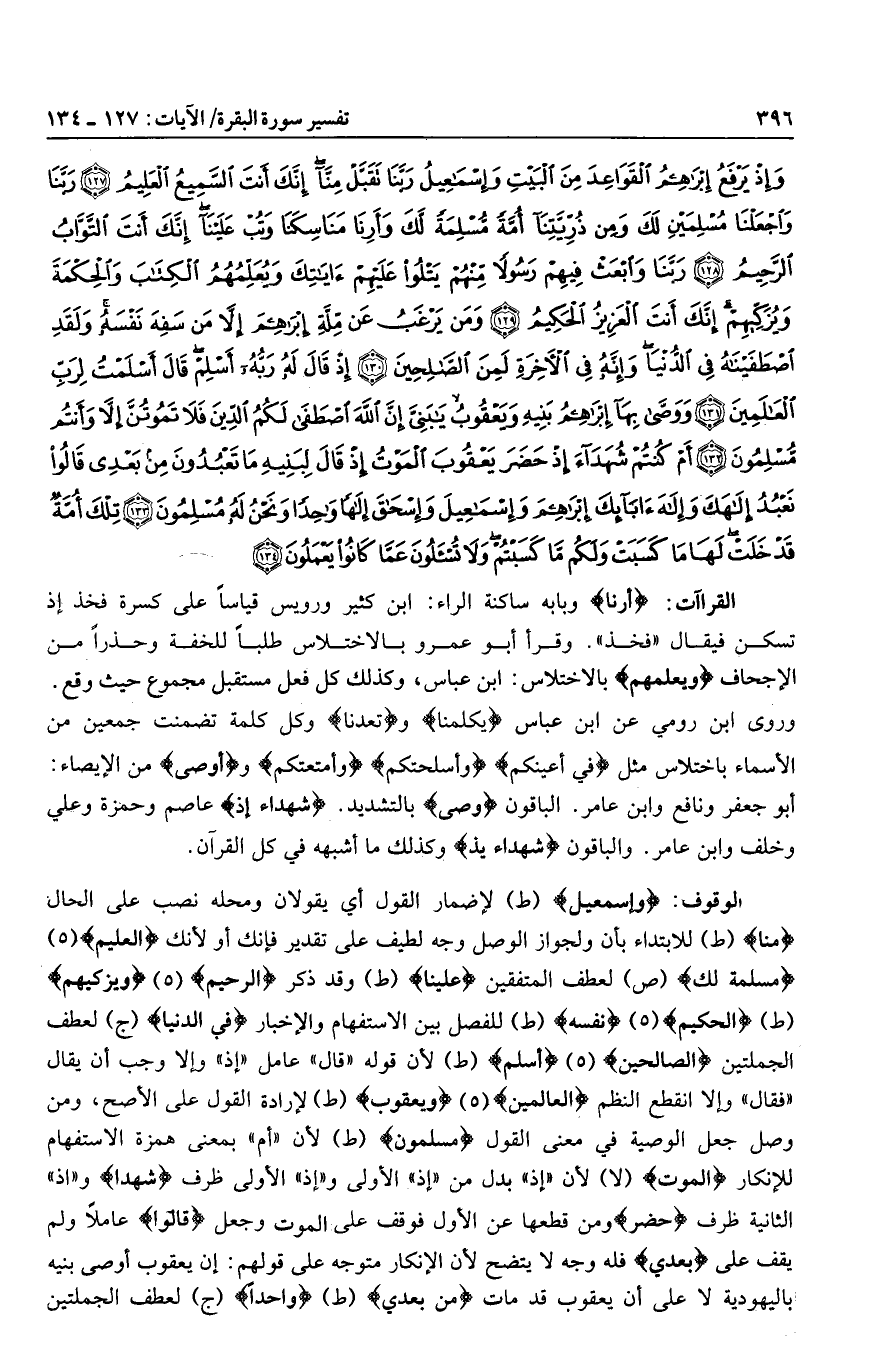 ٣٩٦ تفسير سورة البقرة/ الآيات: ١٢٧ ـ ١٣٤
وَإِذْ يَرْفَعُ إِبْرَٰهِۦمُ ٱلْقَوَاعِدَ مِنَ ٱلْبَيْتِ وَإِسْمَٰعِيلُ رَبَّنَا تَقَبَّلْ مِنَّآ ۖ إِنَّكَ أَنتَ ٱلسَّمِيعُ ٱلْعَلِيمُ ﴿١٢٧﴾ رَبَّنَا
وَٱجْعَلْنَا مُسْلِمَيْنِ لَكَ وَمِن ذُرِّيَّتِنَآ أُمَّةً مُّسْلِمَةً لَّكَ وَأَرِنَا مَنَاسِكَنَا وَتُبْ عَلَيْنَآ ۖ إِنَّكَ أَنتَ ٱلتَّوَّابُ
ٱلرَّحِيمُ ﴿١٢٨﴾ رَبَّنَا وَٱبْعَثْ فِيهِمْ رَسُولًا مِّنْهُمْ يَتْلُوا۟ عَلَيْهِمْ ءَايَٰتِكَ وَيُعَلِّمُهُمُ ٱلْكِتَٰبَ وَٱلْحِكْمَةَ
وَيُزَكِّيهِمْ ۚ إِنَّكَ أَنتَ ٱلْعَزِيزُ ٱلْحَكِيمُ ﴿١٢٩﴾ وَمَن يَرْغَبُ عَن مِّلَّةِ إِبْرَٰهِۦمَ إِلَّا مَن سَفِهَ نَفْسَهُۥ ۚ وَلَقَدِ
ٱصْطَفَيْنَٰهُ فِى ٱلدُّنْيَا ۖ وَإِنَّهُۥ فِى ٱلْـَٔاخِرَةِ لَمِنَ ٱلصَّٰلِحِينَ ﴿١٣٠﴾ إِذْ قَالَ لَهُۥ رَبُّهُۥٓ أَسْلِمْ ۖ قَالَ أَسْلَمْتُ لِرَبِّ
ٱلْعَٰلَمِينَ ﴿١٣١﴾ وَوَصَّىٰ بِهَآ إِبْرَٰهِۦمُ بَنِيهِ وَيَعْقُوبُ يَٰبَنِىَّ إِنَّ ٱللَّهَ ٱصْطَفَىٰ لَكُمُ ٱلدِّينَ فَلَا تَمُوتُنَّ إِلَّا وَأَنتُم
مُّسْلِمُونَ ﴿١٣٢﴾ أَمْ كُنتُمْ شُهَدَآءَ إِذْ حَضَرَ يَعْقُوبَ ٱلْمَوْتُ إِذْ قَالَ لِبَنِيهِ مَا تَعْبُدُونَ مِنۢ بَعْدِى قَالُوا۟
نَعْبُدُ إِلَٰهَكَ وَإِلَٰهَ ءَابَآئِكَ إِبْرَٰهِۦمَ وَإِسْمَٰعِيلَ وَإِسْحَٰقَ إِلَٰهًا وَٰحِدًا وَنَحْنُ لَهُۥ مُسْلِمُونَ ﴿١٣٣﴾ تِلْكَ أُمَّةٌ
قَدْ خَلَتْ ۖ لَهَا مَا كَسَبَتْ وَلَكُم مَّا كَسَبْتُمْ ۖ وَلَا تُسْـَٔلُونَ عَمَّا كَانُوا۟ يَعْمَلُونَ ﴿١٣٤﴾
القراآت: ﴿أرنا﴾ وبابه ساكنة الراء: ابن كثير ورويس قياساً على كسرة فخذ إذ
تسكن فيقال «فخذ». وقرأ أبو عمرو بالاختلاس طلباً للخفة وحذراً من
الإجحاف ﴿ويعلمهم﴾ بالاختلاس: ابن عباس، وكذلك كل فعل مستقبل مجموع حيث وقع.
وروى ابن رومي عن ابن عباس ﴿يكلمنا﴾ و﴿تعدنا﴾ وكل كلمة تضمنت جمعين من
الأسماء باختلاس مثل ﴿في أعينكم﴾ ﴿وأسلحتكم﴾ ﴿وأمتعتكم﴾ و﴿أوصى﴾ من الإيصاء:
أبو جعفر ونافع وابن عامر. الباقون ﴿وصى﴾ بالتشديد. ﴿شهداء إذ﴾ عاصم وحمزة وعلي
وخلف وابن عامر. والباقون ﴿شهداء يذ﴾ وكذلك ما أشبهه في كل القرآن.
الوقوف: ﴿وإسمعيل﴾ (ط) لإضمار القول أي يقولان ومحله نصب على الحال
﴿منا﴾ (ط) للابتداء بأن ولجواز الوصل وجه لطيف على تقدير فإنك أو لأنك ﴿العليم﴾(٥)
﴿مسلمة لك﴾ (ص) لعطف المتفقين ﴿علينا﴾ (ط) وقد ذكر ﴿الرحيم﴾ (٥) ﴿ويزكيهم﴾
(ط) ﴿الحكيم﴾(٥) ﴿نفسه﴾ (ط) للفصل بين الاستفهام والإخبار ﴿في الدنيا﴾ (ج) لعطف
الجملتين ﴿الصالحين﴾ (٥) ﴿أسلم﴾ (ط) لأن قوله «قال» عامل «إذ» وإلا وجب أن يقال
«فقال» وإلا انقطع النظم ﴿العالمين﴾(٥) ﴿ويعقوب﴾ (ط) لإرادة القول على الأصح، ومن
وصل جعل الوصية في معنى القول ﴿مسلمون﴾ (ط) لأن «أم» بمعنى همزة الاستفهام
للإنكار ﴿الموت﴾ (لا) لأن «إذ» بدل من «إذ» الأولى و«إذ» الأولى ظرف ﴿شهدا﴾ و«اذ»
الثانية ظرف ﴿حضر﴾ومن قطعها عن الأول فوقف على الموت وجعل ﴿قالوا﴾ عاملاً ولم
يقف على ﴿بعدي﴾ فله وجه لا يتضح لأن الإنكار متوجه على قولهم: إن يعقوب أوصى بنيه
باليهودية لا على أن يعقوب قد مات ﴿من بعدي﴾ (ط) ﴿واحداً﴾ (ج) لعطف الجملتين